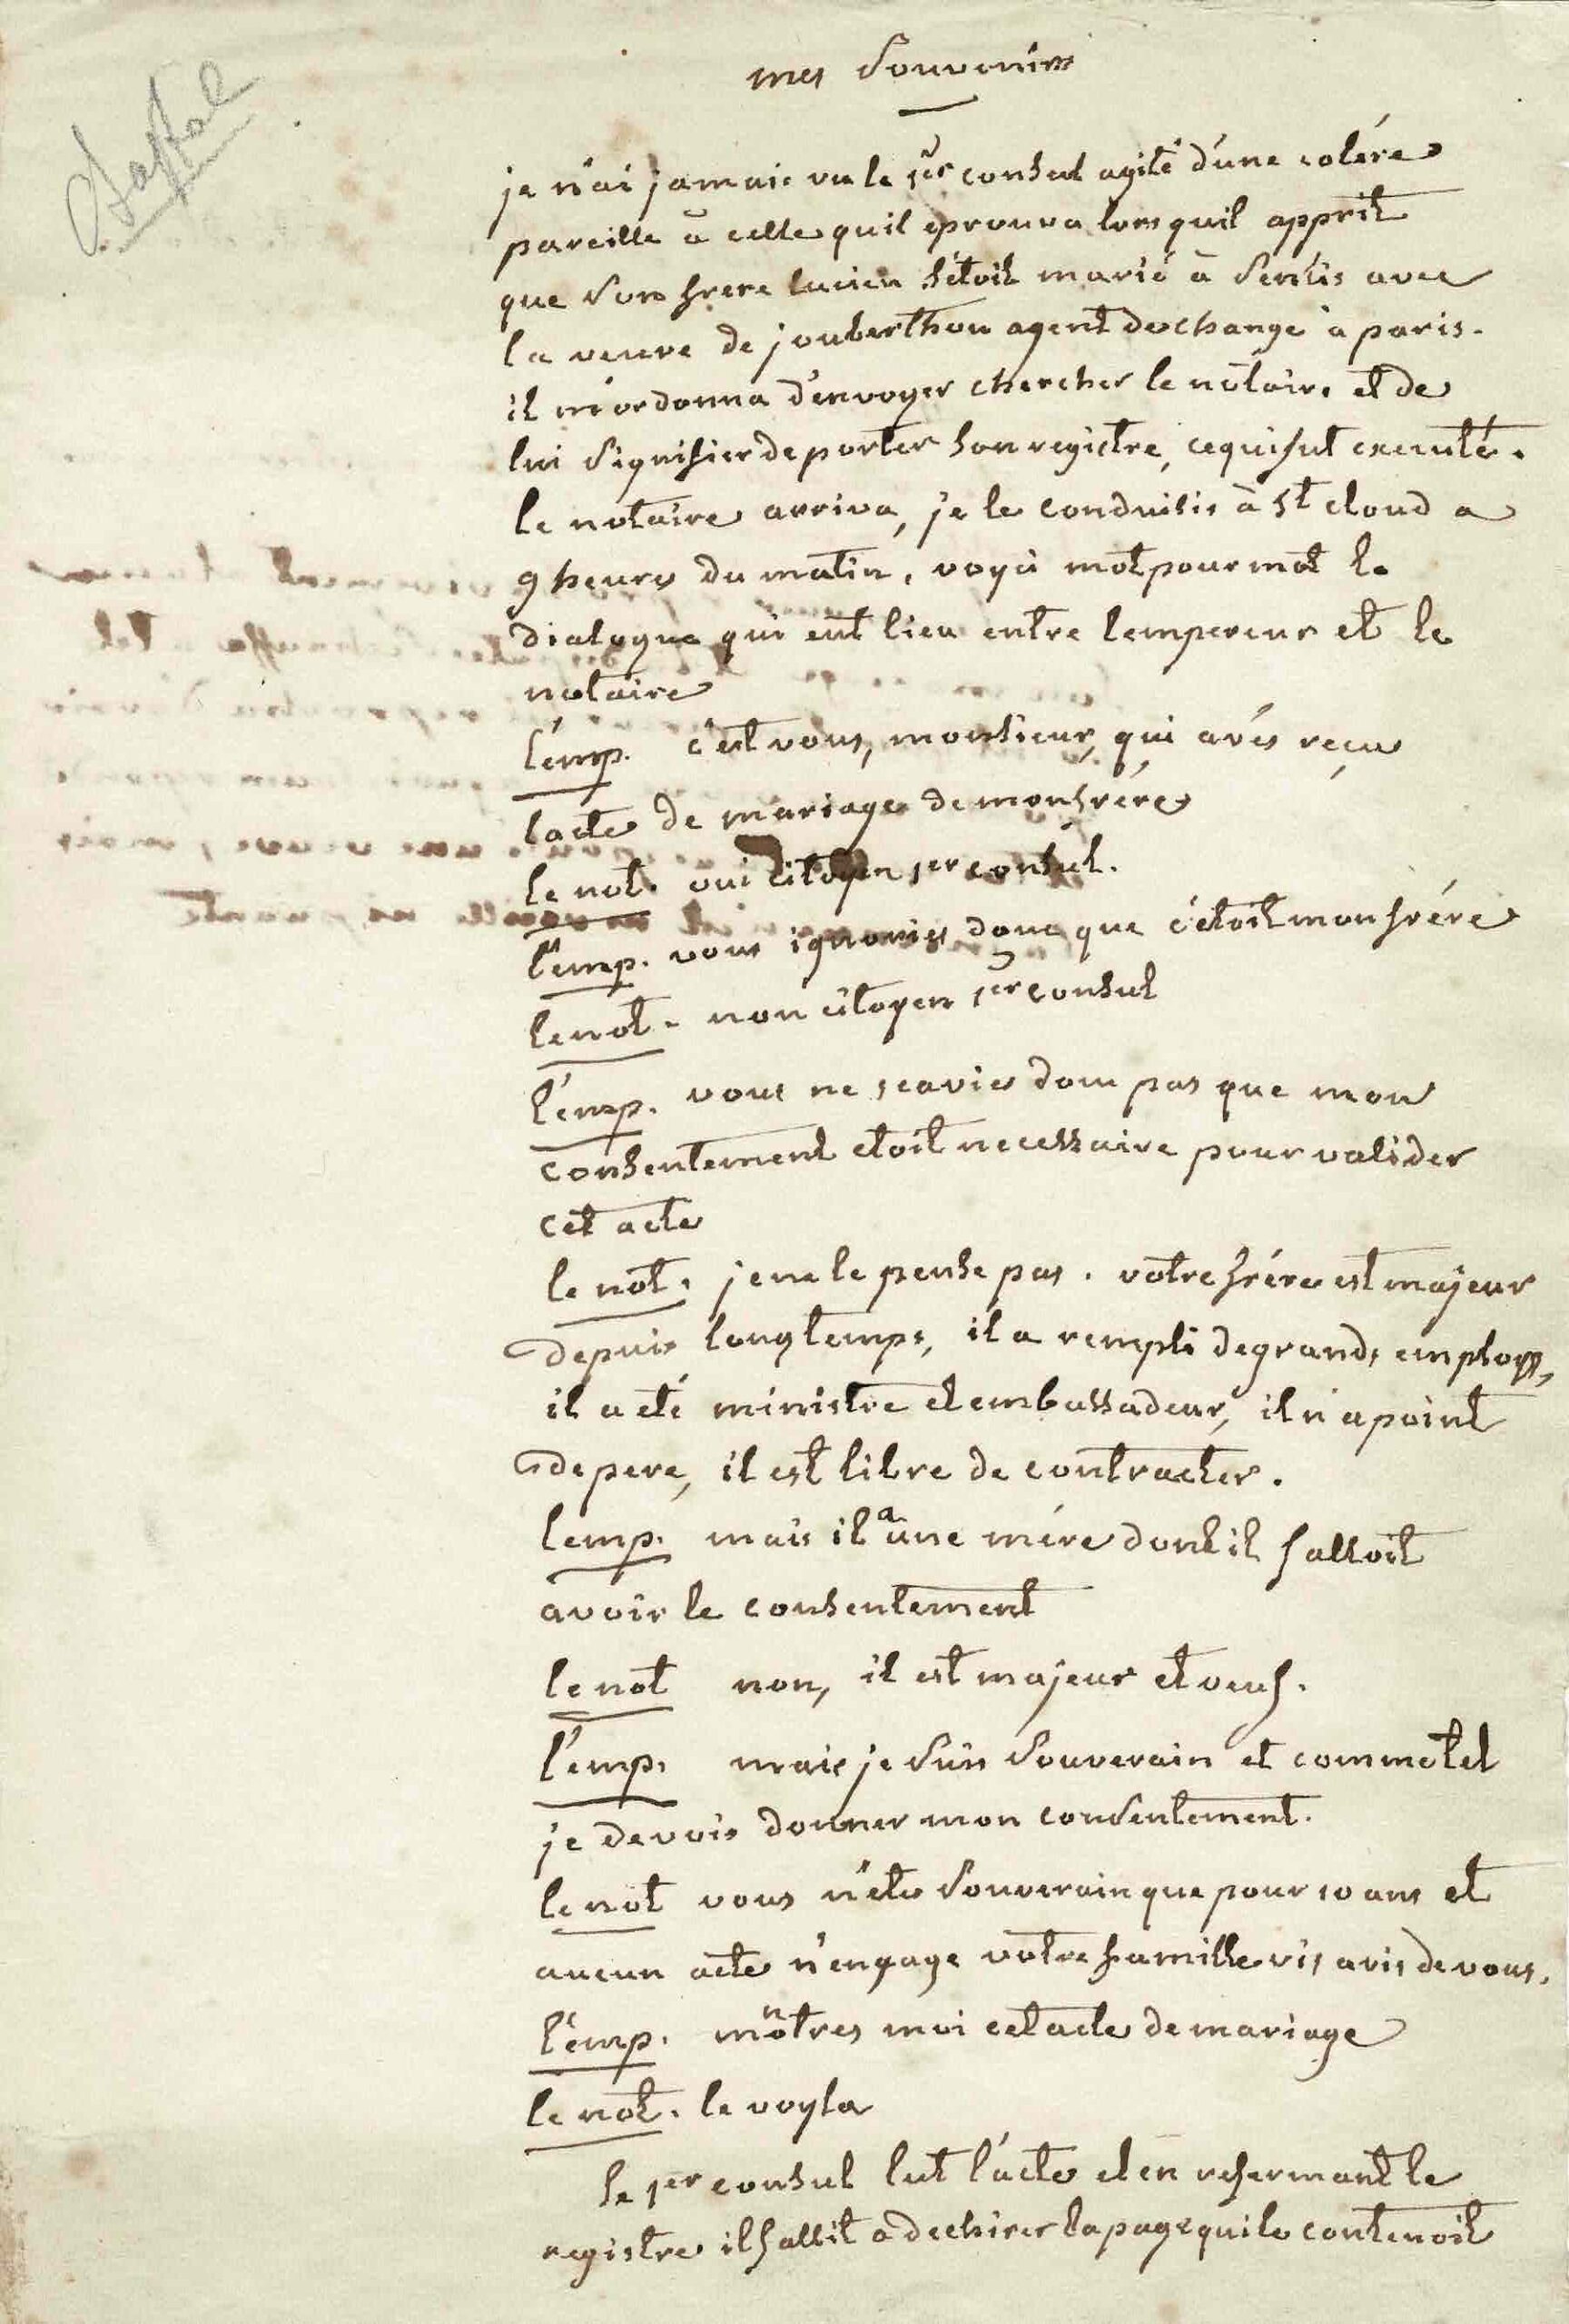 Chaptal
mes Souvenirs
je n'ai jamais vu le 1er consul agité d'une colére
pareille à celle quil eprouva lors quil apprit
que son frere lucien s'étoit marié à Senlis avec
la veuve de jouberthou agent dechange à paris.
il m'ordonna d'envoyer chercher le notaire et de
lui signifier de porter son registre, ce qui fut executé.
le notaire arriva, je le conduisis à St cloud a
9 heures du matin, voyci mot pour mot le
dialogue qui eut lieu entre lempereur et le
notaire
l'emp. c'est vous, monsieur, qui avés reçu
lacte de mariage de mon frére
le not. oui citoyen 1er consul.
l'emp. vous ignoriés donc que c'étoit mon frére
le not. non citoyen 1er consul
l'emp. vous ne scaviés donc pas que mon
consentement etoit necessaire pour valider
cet acte
le not. je ne le pense pas. votre frére est majeur
depuis longtemps, il a rempli de grands employs,
il a eté ministre et embassadeur, il n'a point
de pere, il est libre de contracter.
lemp. mais il a une mére dont il falloit
avoir le consentement
le not non, il est majeur et veuf.
l'emp. mais je suis Souverain et comme tel
je devois donner mon consentement.
le not vous n'etes Souverain que pour 10 ans et
aucun acte n'engage votre famille vis avis de vous.
l'emp. montres moi cet acte de mariage
le not. le voyla
le 1er consul lut l'acte et en refermant le
registre il fallit a dechirer la page qui le contenoit